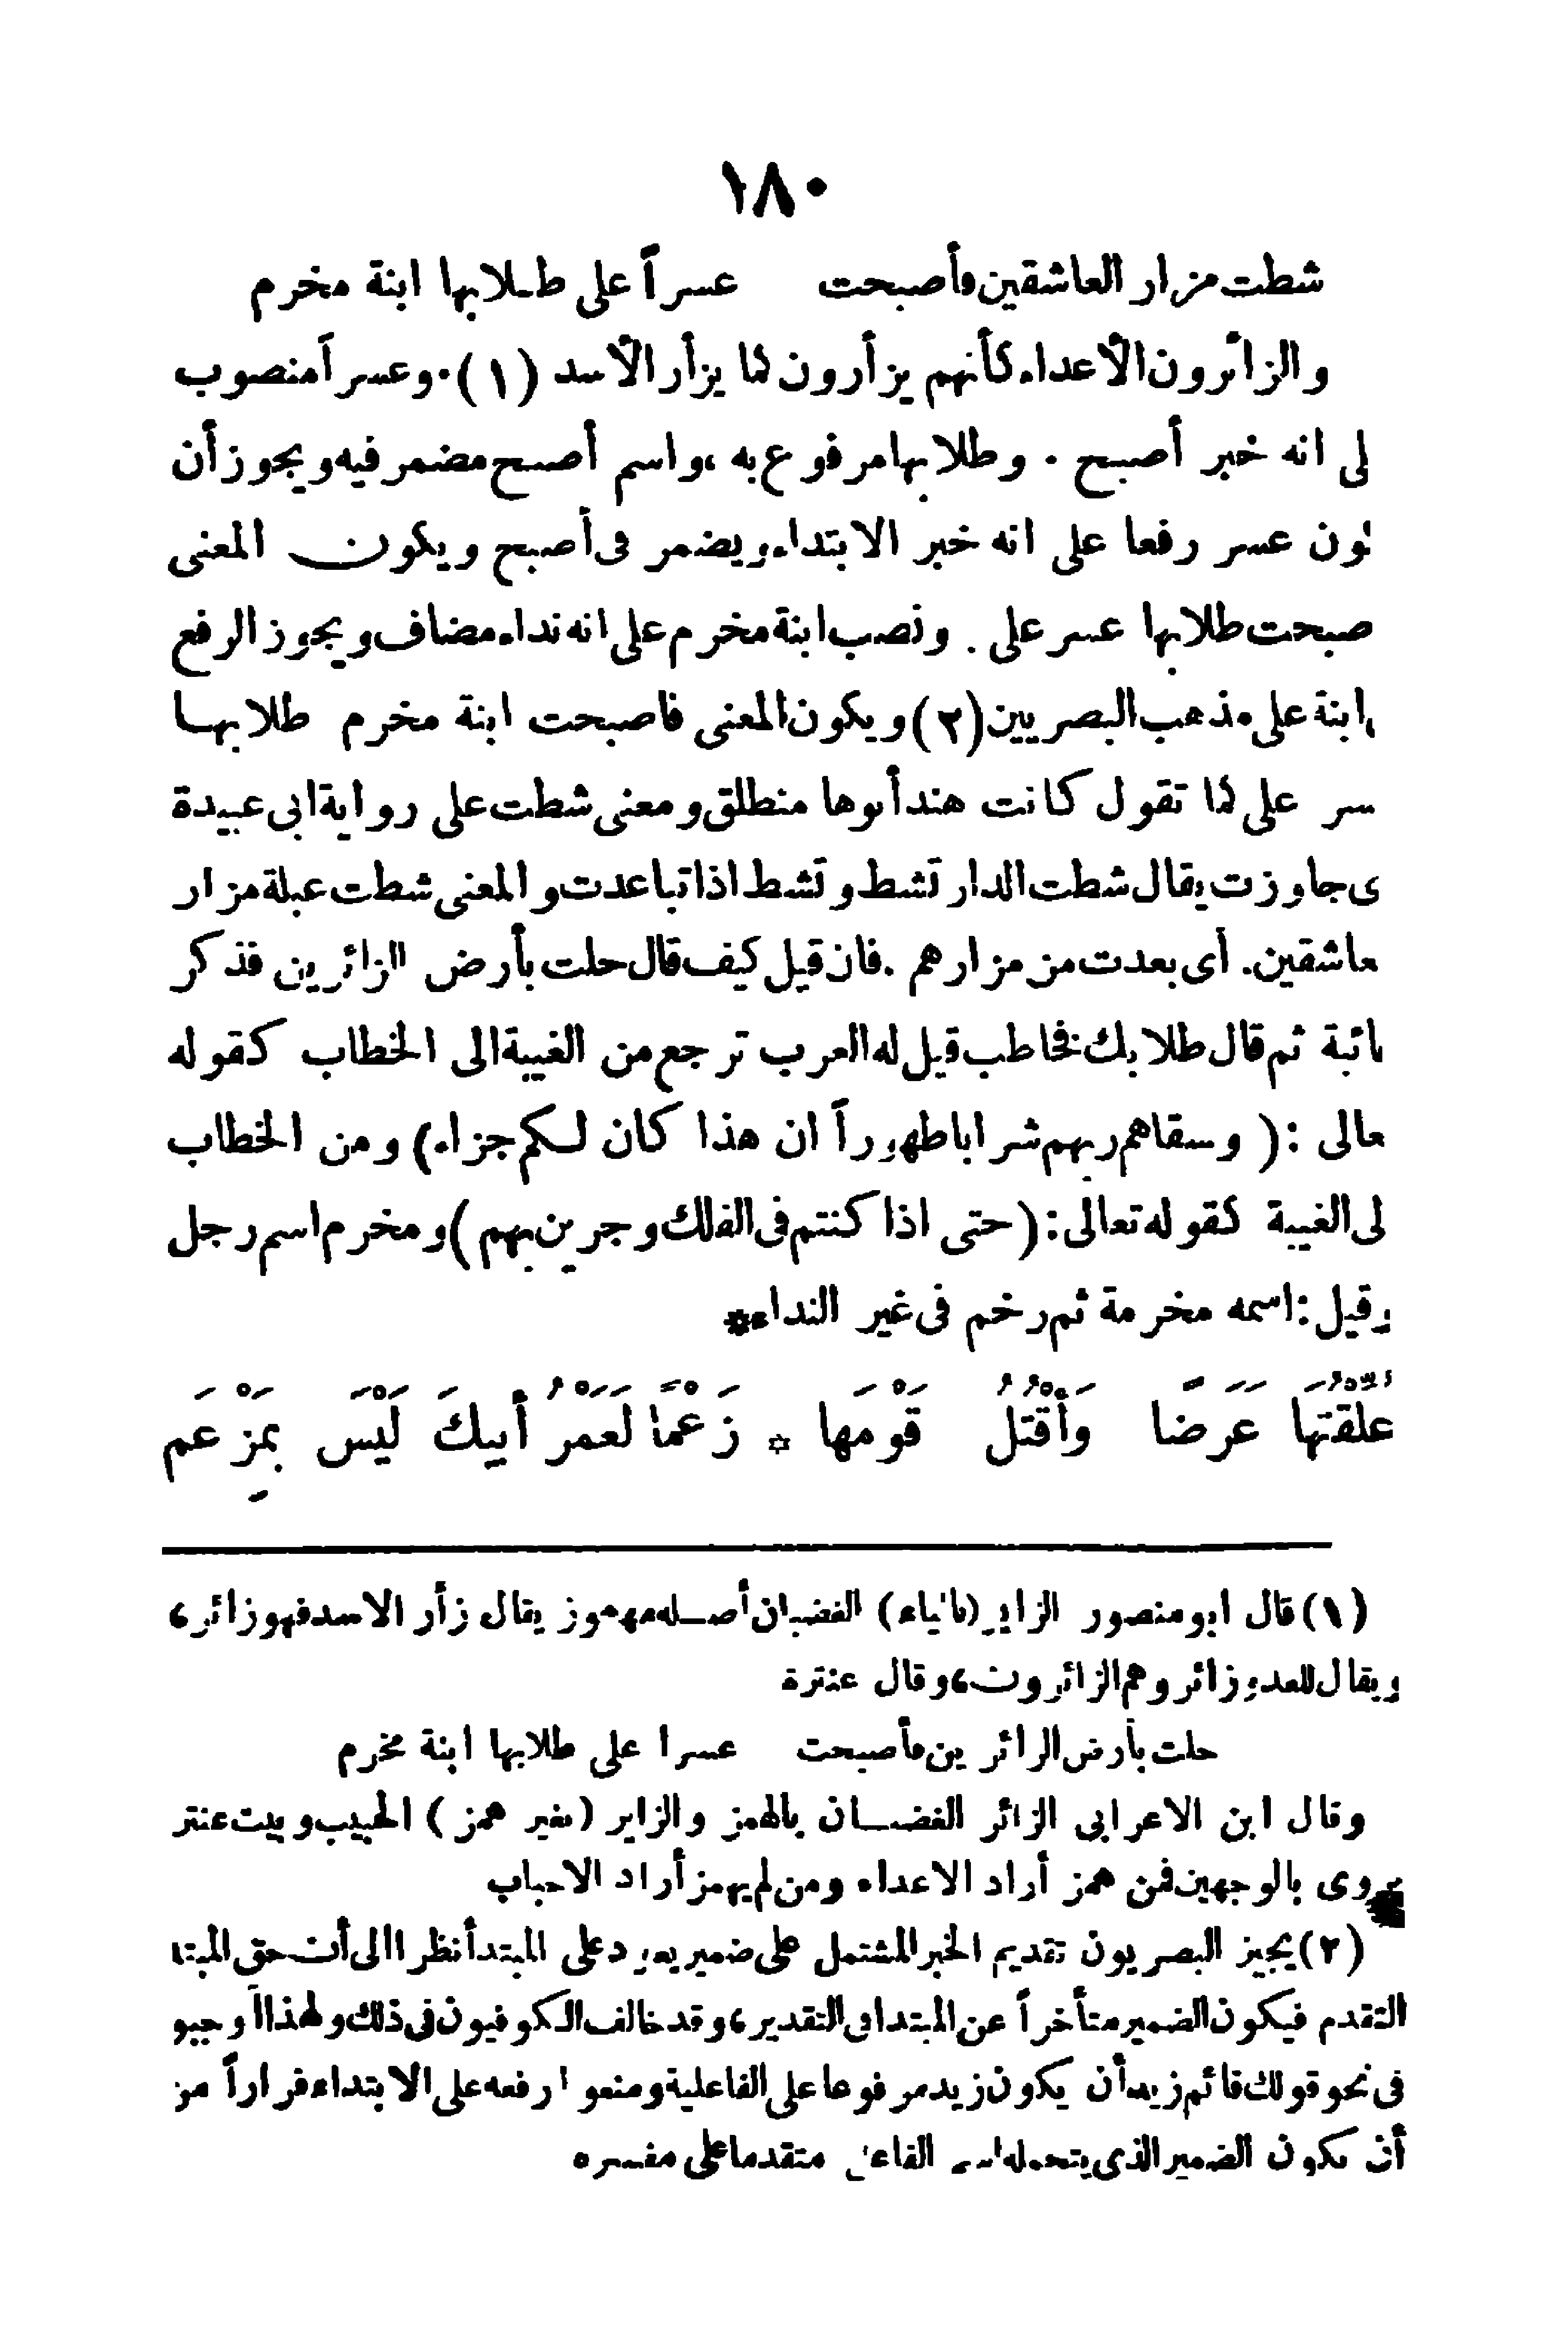 ١٨٠
شطت مزار العاشقين فأصبحت عسراً على طلابها ابنة مخرم
والزائرون الأعداء كأنهم يزأرون كما يزأر الأسد (١). وعسراً منصوب
لى انه خبر أصبح . وطلابها مرفوع به ،واسم أصبح مضمر فيه ويجوز أن
كون عسر رفعا على انه خبر الابتداء ويضمر فى أصبح ويكون المعنى
صبحت طلابها عسر على . ونصب ابنة مخرم على انه نداء مضاف ويجوز الرفع
ابنة على مذهب البصريين (٢) ويكون المعنى فاصبحت ابنة مخرم طلابها
سر على كما تقول كانت هند أبوها منطلق ومعنى شطت على رواية ابى عبيدة
ى جاوزت يقال شطت الدار تشط وتشط اذا تباعدت والمعنى شطت عبلة مزار
عاشقين. أى بعدت من مزارهم .فان قيل كيف قال حلت بأرض الزائرين فذكر
ائبة ثم قال طلابك فخاطب قيل له العرب ترجع من الغيبة الى الخطاب كقوله
عالى :( وسقاهم ربهم شرابا طهوراً ان هذا كان لكم جزاء) ومن الخطاب
لى الغيبة كقوله تعالى: (حتى اذا كنتم فى الفلك وجرين بهم) ومخرم اسم رجل
وقيل: اسمه مخرمة ثم رخم فى غير النداء*
عُلِّقْتُهَا عَرَضًا وَأَقْتُلُ قَوْمَها * زَعْمًا لَعَمْرُ أَبيكَ لَيْسَ بِمَزْعَمِ
(١) قال ابو منصور الزاير (بالياء) الغضبان أصله مهموز يقال زأر الاسد فهو زائر،
ويقال للعدو زائر وهم الزائرون، وقال عنترة
حلت بأرض الزائرين فأصبحت عسرا على طلابها ابنة مخرم
وقال ابن الاعرابى الزائر الغضبان بالهمز والزاير (بغير همز) الحبيب وبيت عنتر
يروى بالوجهين فمن همز أراد الاعداء ومن لم يهمز أراد الاحباب
(٢) يجيز البصريون تقديم الخبر المشتمل على ضمير يعود على المبتدأ نظرا الى أن حق المبتا
التقدم فيكون الضمير متأخراً عن المبتدا فى التقدير، وقد خالف الكوفيون فى ذلك ولهذا أوجبو
فى نحو قولك قائم زيد أن يكون زيد مرفوعا على الفاعلية ومنعوا رفعه على الابتداء فراراً من
أن يكون الضمير الذى يتحمله اسم الفاعل متقدما على مفسره